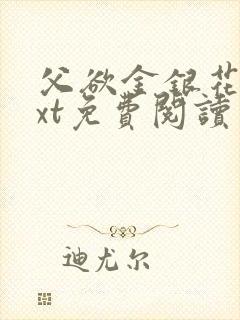 父欲金銀花
xt免費閱讀
迪尤尔